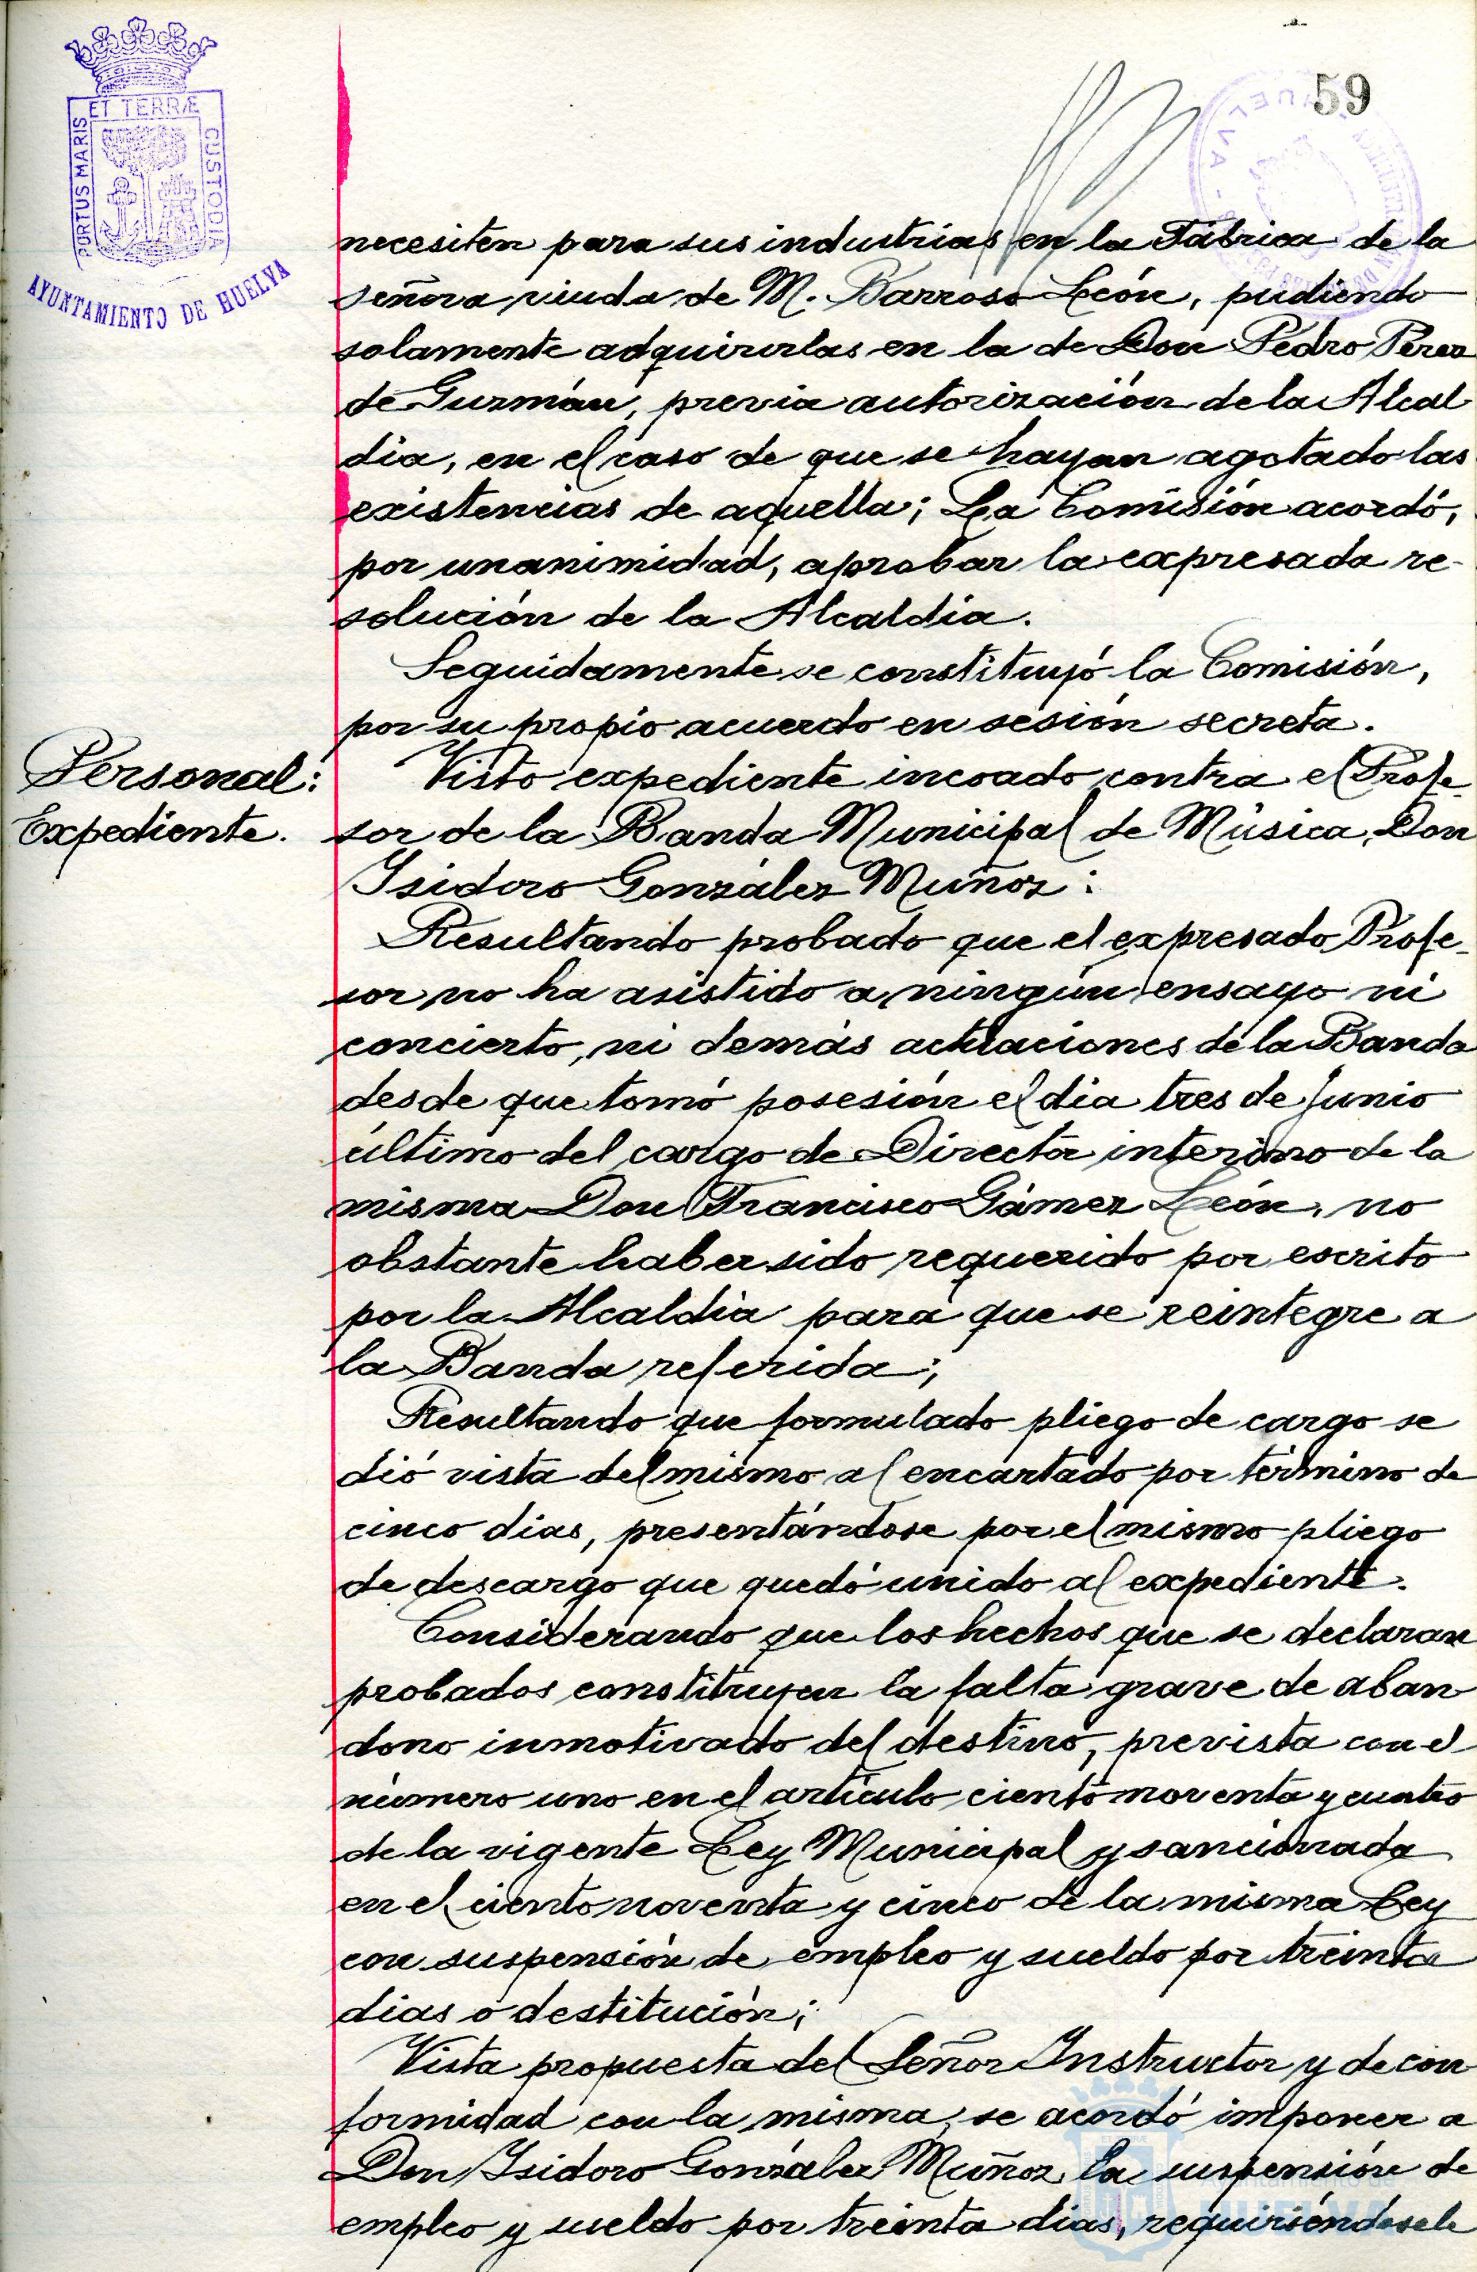 59
PORTUS MARIS ET TERRÆ CUSTODIA
AYUNTAMIENTO DE HUELVA
necesiten para sus industrias en la Fábrica de la
señora viuda de M. Barroso León, pudiendo
solamente adquirirlas en la de Don Pedro Pérez
de Guzmán, previa autorización de la Alcal
dia, en el caso de que se hayan agotado las
existencias de aquella; La Comisión acordó,
por unanimidad, aprobar la expresada re-
solución de la Alcaldía.
Seguidamente se constituyó la Comisión,
por su propio acuerdo en sesión secreta.
Personal:
Expediente.
Visto expediente incoado contra el Profe-
sor de la Banda Municipal de Música, Don
Isidoro González Muñoz:
Resultando probado que el expresado Profe-
sor no ha asistido a ningún ensayo ni
concierto, ni demás actuaciones de la Banda
desde que tomó posesión el dia tres de Junio
último del cargo de Director interino de la
misma Don Francisco Gámez León, no
obstante haber sido requerido por escrito
por la Alcaldía para que se reintegre a
la Banda referida;
Resultando que formulado pliego de cargo se
dió vista del mismo al encartado por término de
cinco dias, presentándose por el mismo pliego
de descargo que quedó unido al expediente.
Considerando que los hechos que se declaran
probados constituyen la falta grave de aban
dono inmotivado del destino, prevista con el
número uno en el artículo ciento noventa y cuatro
de la vigente Ley Municipal y sancionada
en el ciento noventa y cinco de la misma Ley
con suspensión de empleo y sueldo por treinta
dias o destitución;
Vista propuesta del Señor Instructor y de con
formidad con la misma, se acordó imponer a
Don Isidoro González Muñoz la suspensión de
empleo y sueldo por treinta dias, requiriéndosele
Ayuntamiento de
HUELVA